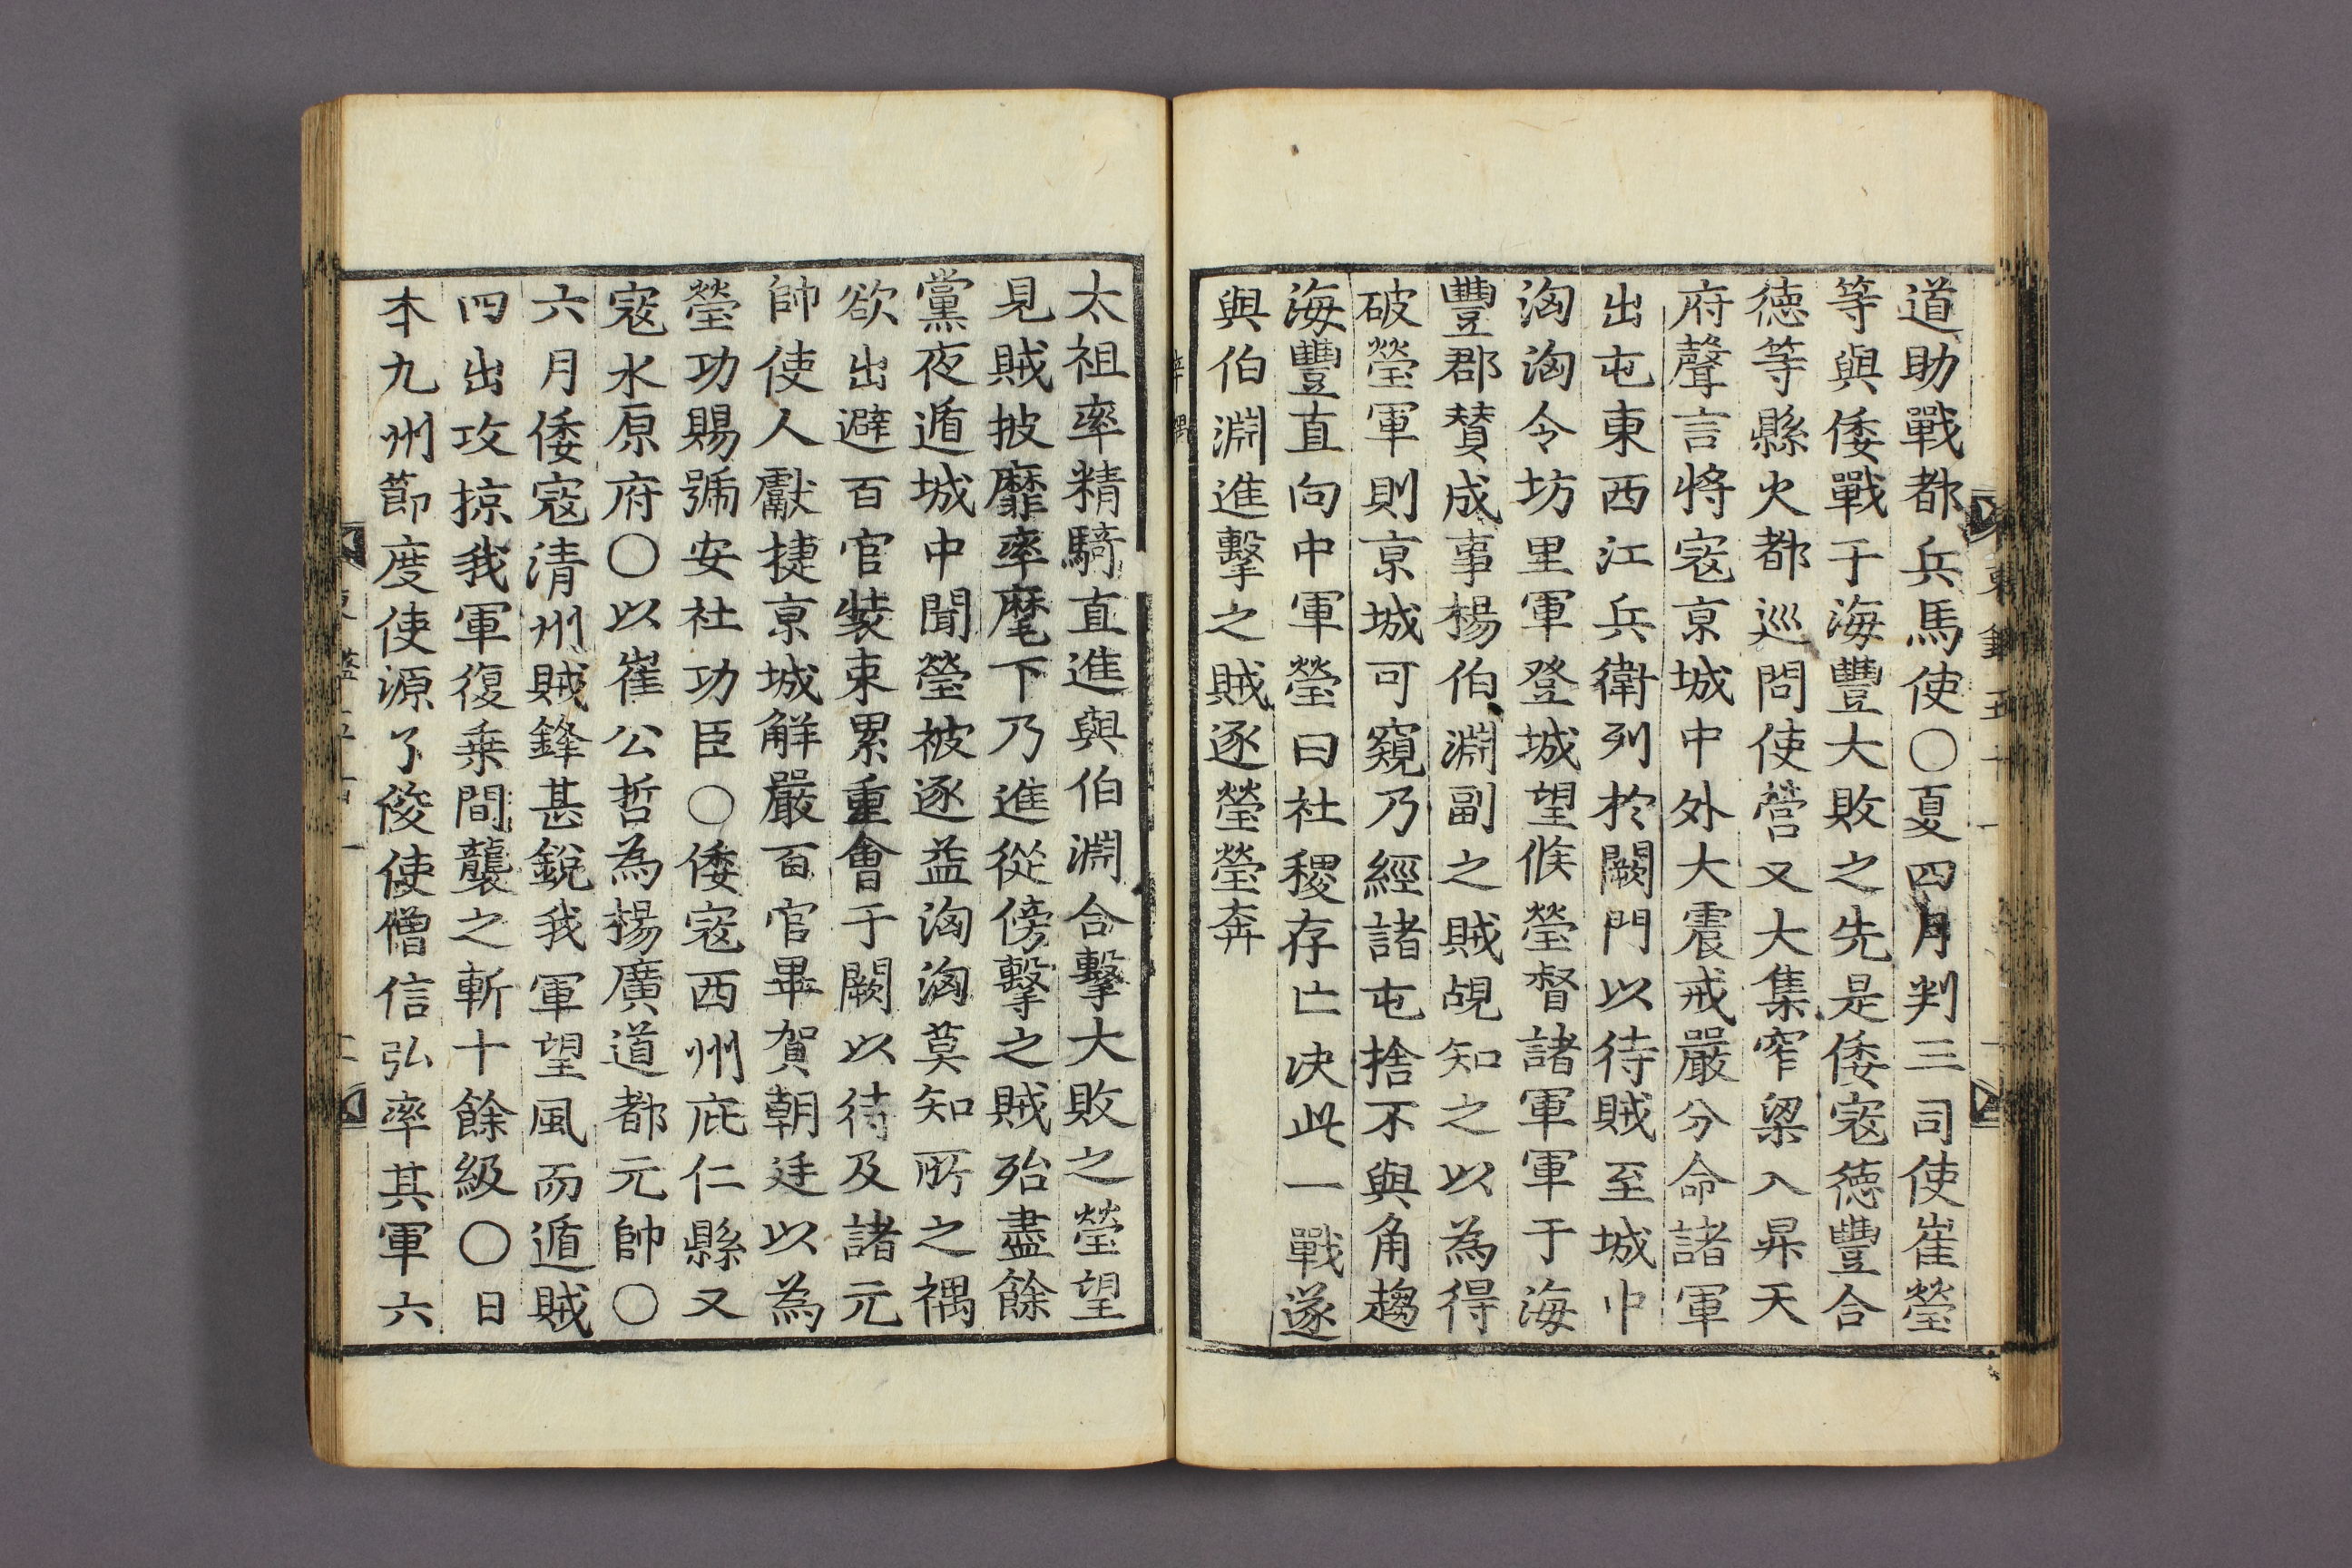 道助戰都兵馬使○夏四月判三司使崔瑩
等與倭戰于海豐大敗之先是倭寇德豐合
德等縣火都巡問使營又大集窄梁入昇天
府聲言將寇京城中外大震戒嚴分命諸軍
出屯東西江兵衛列於闕門以待賊至城中
洶洶令坊里軍登城望候瑩督諸軍軍于海
豐郡贊成事楊伯淵副之賊覘知之以為得
破瑩軍則京城可窺乃經諸屯捨不與角趨
海豐直向中軍瑩曰社稷存亡决此一戰遂
與伯淵進擊之賊逐瑩瑩奔
太祖率精騎直進與伯淵合擊大敗之瑩望
見賊披靡率麾下乃進從傍擊之賊殆盡餘
黨夜遁城中聞瑩被逐益洶洶莫知所之禑
欲出避百官裝束累重會于闕以待及諸元
帥使人獻捷京城解嚴百官畢賀朝廷以為
瑩功賜號安社功臣○倭寇西州庇仁縣又
寇水原府○以崔公哲為楊廣道都元帥○
六月倭寇清州賊鋒甚銳我軍望風而遁賊
四出攻掠我軍復乗間襲之斬十餘級○日
本九州節度使源了俊使僧信弘率其軍六